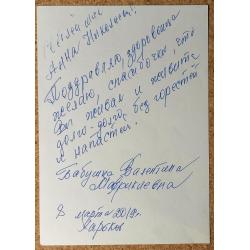 Анна Николаевна!
Поздравляю, здоровья
желаю, спасибочки, что
Вы живая и живите
долго-долго, без горестей
и напастей.
Бабушка Валентина
8 марта 2019г.
Харьков